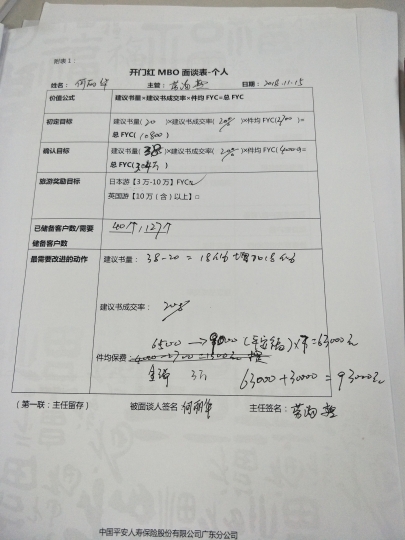 附表1：
开门红 MBO 面谈表-个人
姓名： 主管： 日期：2018.11.15
价值公式 建议书量×建议书成交率×件均FYC=总FYC
初定目标 建议书量(20 )×建议书成交率( 20% )×件均 FYC(2700 )=
总 FYC(10800 )
确认目标 建议书量( 38 )×建议书成交率( 20% )×件均 FYC(4000)=
总FYC(3.04万 )
旅游奖励目标 日本游【3万-10万】FYC☑
英国游【10万（含）以上】□
已储备客户数/需要
储备客户数 40个/127个
最需要改进的动作 建议书量： 38-20 = 18 增加18
建议书成交率： 20%
6500 → 9000 (平安福)×7=63000元
件均保费：
3万 63000+30000 = 93000元
（第一联：主任留存） 被面谈人签名 主任签名：
中国平安人寿保险股份有限公司广东分公司